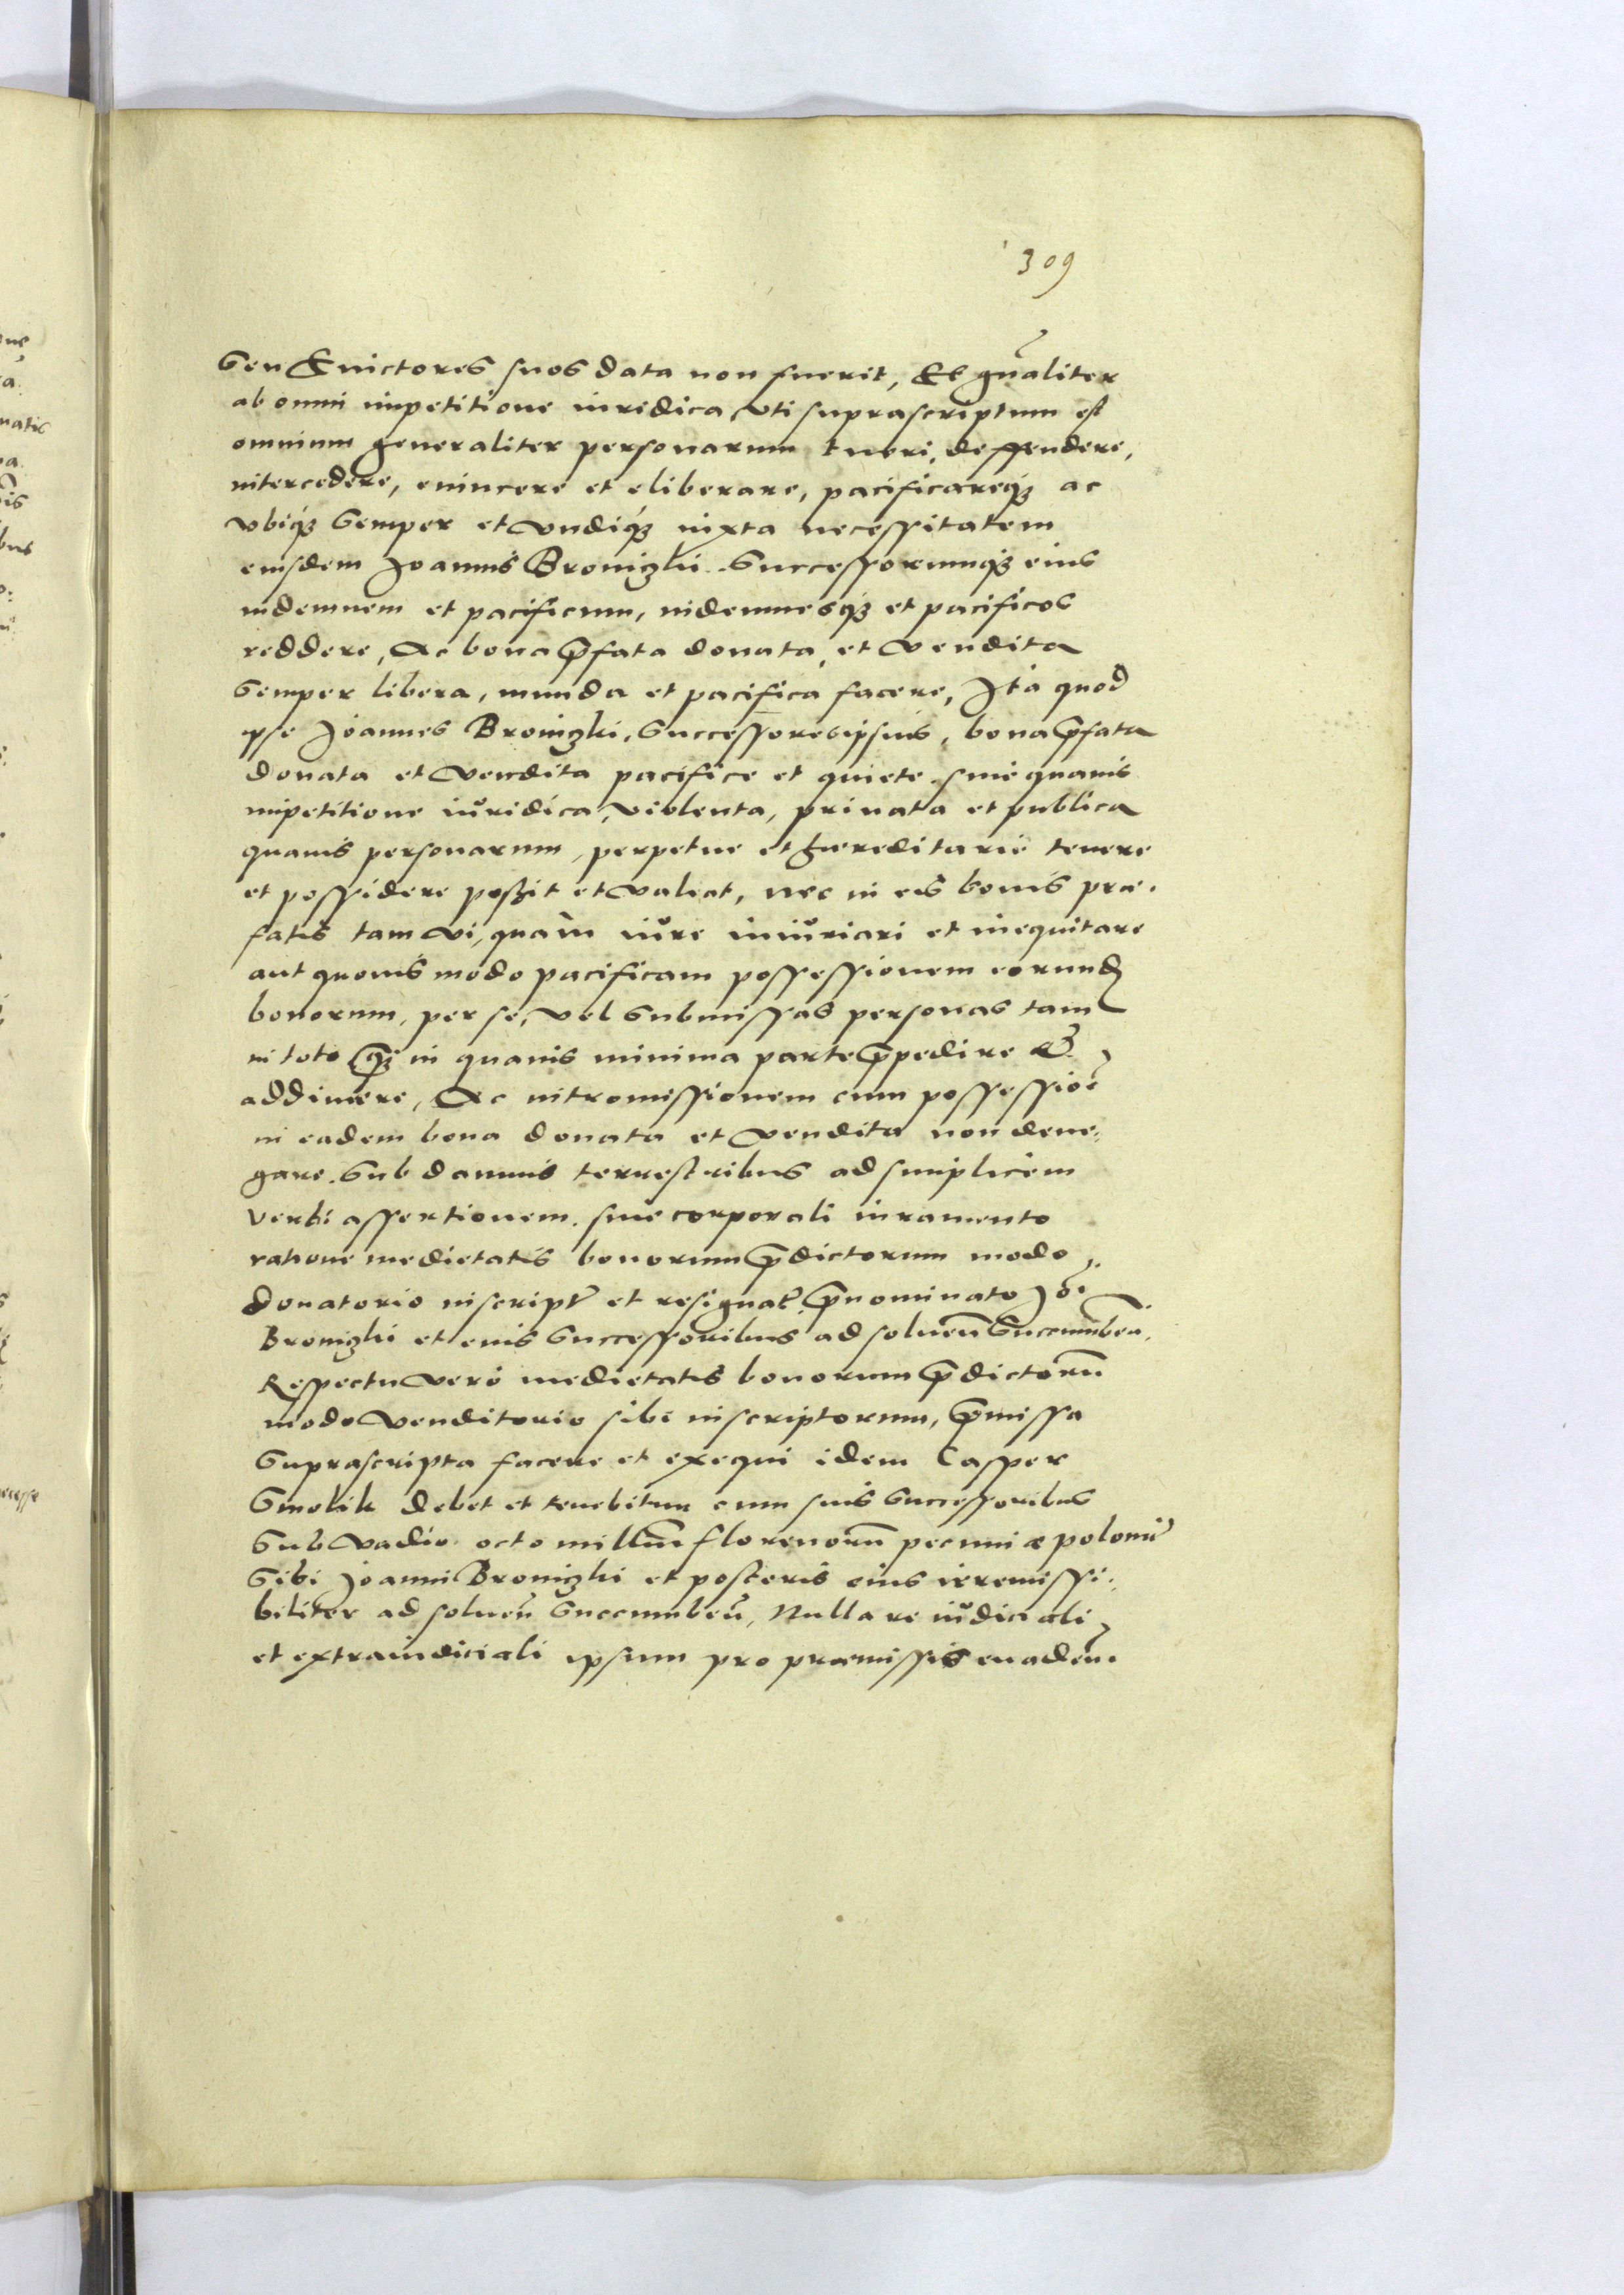 309
seu Euictores suos data non fuerit, Et gnaliter
ab omni impetitione iuridica vti suprascriptum est
omnium generaliter personarum tueri, deffendere,
intercedere, euincere et eliberare, pacificareq3 ac
vbiq3 semper et vndiq3 iuxta necessitatem
eiusdem Joannis Broniczki Successorumq3 eius
indemnem et pacificum, indemnesq3 et pacificos
reddere, Ac bona pfata donata, et vendita
semper libera, munda et pacifica facere, Jta quod
ipse Joannes Broniczki, Successores ipsius, bona pfata
donata et vendita pacifice et quiete sine quauis
impetitione iuridica, violenta, priuata et publica
quauis personarum, perpetue et haereditarie tenere
et possidere possit et valeat, nec in eis bonis prae.
fatis tam vi, quam iure iniuriari et inequitare
aut quouis modo pacificam possessionem eorund
bonorum, per se, vel submissas personas tam
in toto q3 in quauis minima parte ppedire &
addimere, Ac intromissionem cum possessioe
in eadem bona donata et vendita non dene„
gare. Sub damnis terrestribus ad simplicem
verbi assertionem, sine corporali iuramento
ratione medietatis bonorum pdictorum modo
donatorio inscript et resignat pnominato Joi
Broniczki et eius Successoribus ad soluen Succumben.
Respectu vero medietatis bonorum pdictoru
modo venditorio sibi inscriptorum, pmissa
suprascripta facere et exequi idem Casper
Smolik debet et tenebitur cum suis successoribus
sub vadio octo millium florenoru pecuniae polon
sibi Joanni Broniczki et posteris eius irremissi.
biliter ad soluen succumben, Nulla re iudiciali
et extraiudiciali ipsum pro praemissis euaden.